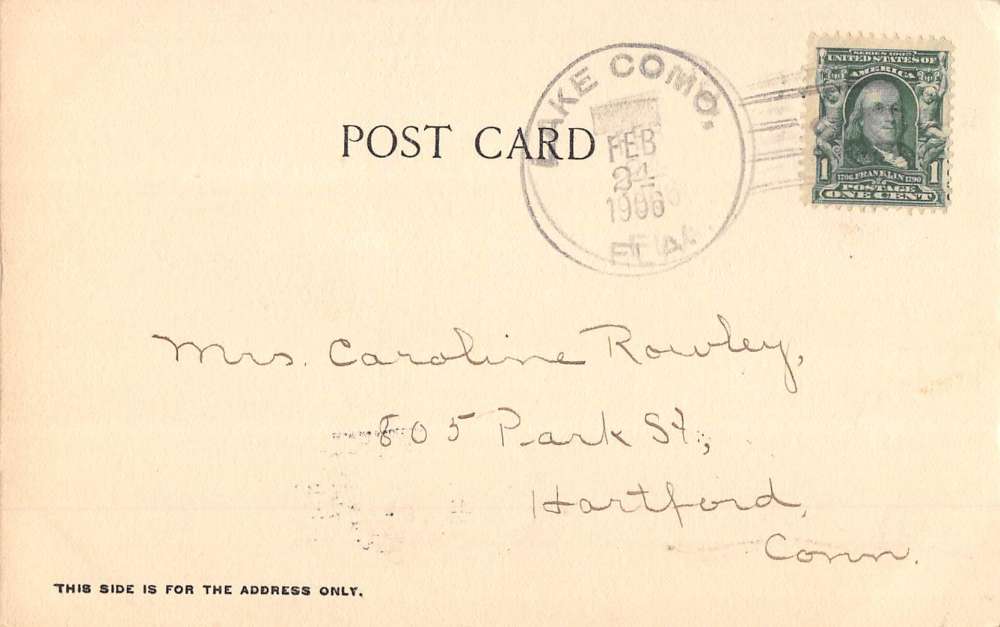 LAKE COMO,
FEB
24
1906
FLA.
SERIES 1902
UNITED STATES OF
AMERICA
1 1706 FRANKLIN 1790 1
POSTAGE
ONE CENT
POST CARD
Mrs. Caroline Rowley,
805 Park St.,
Hartford,
Conn.
THIS SIDE IS FOR THE ADDRESS ONLY.